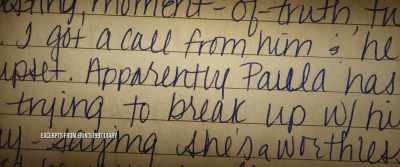 moment-of-truth, tu
. I got a call from him & he
upset. Apparently Paula has
trying to break up w/ hi
y-saying she's a worthless
EXCERPTS FROM ERIN'S 1993 DIARY